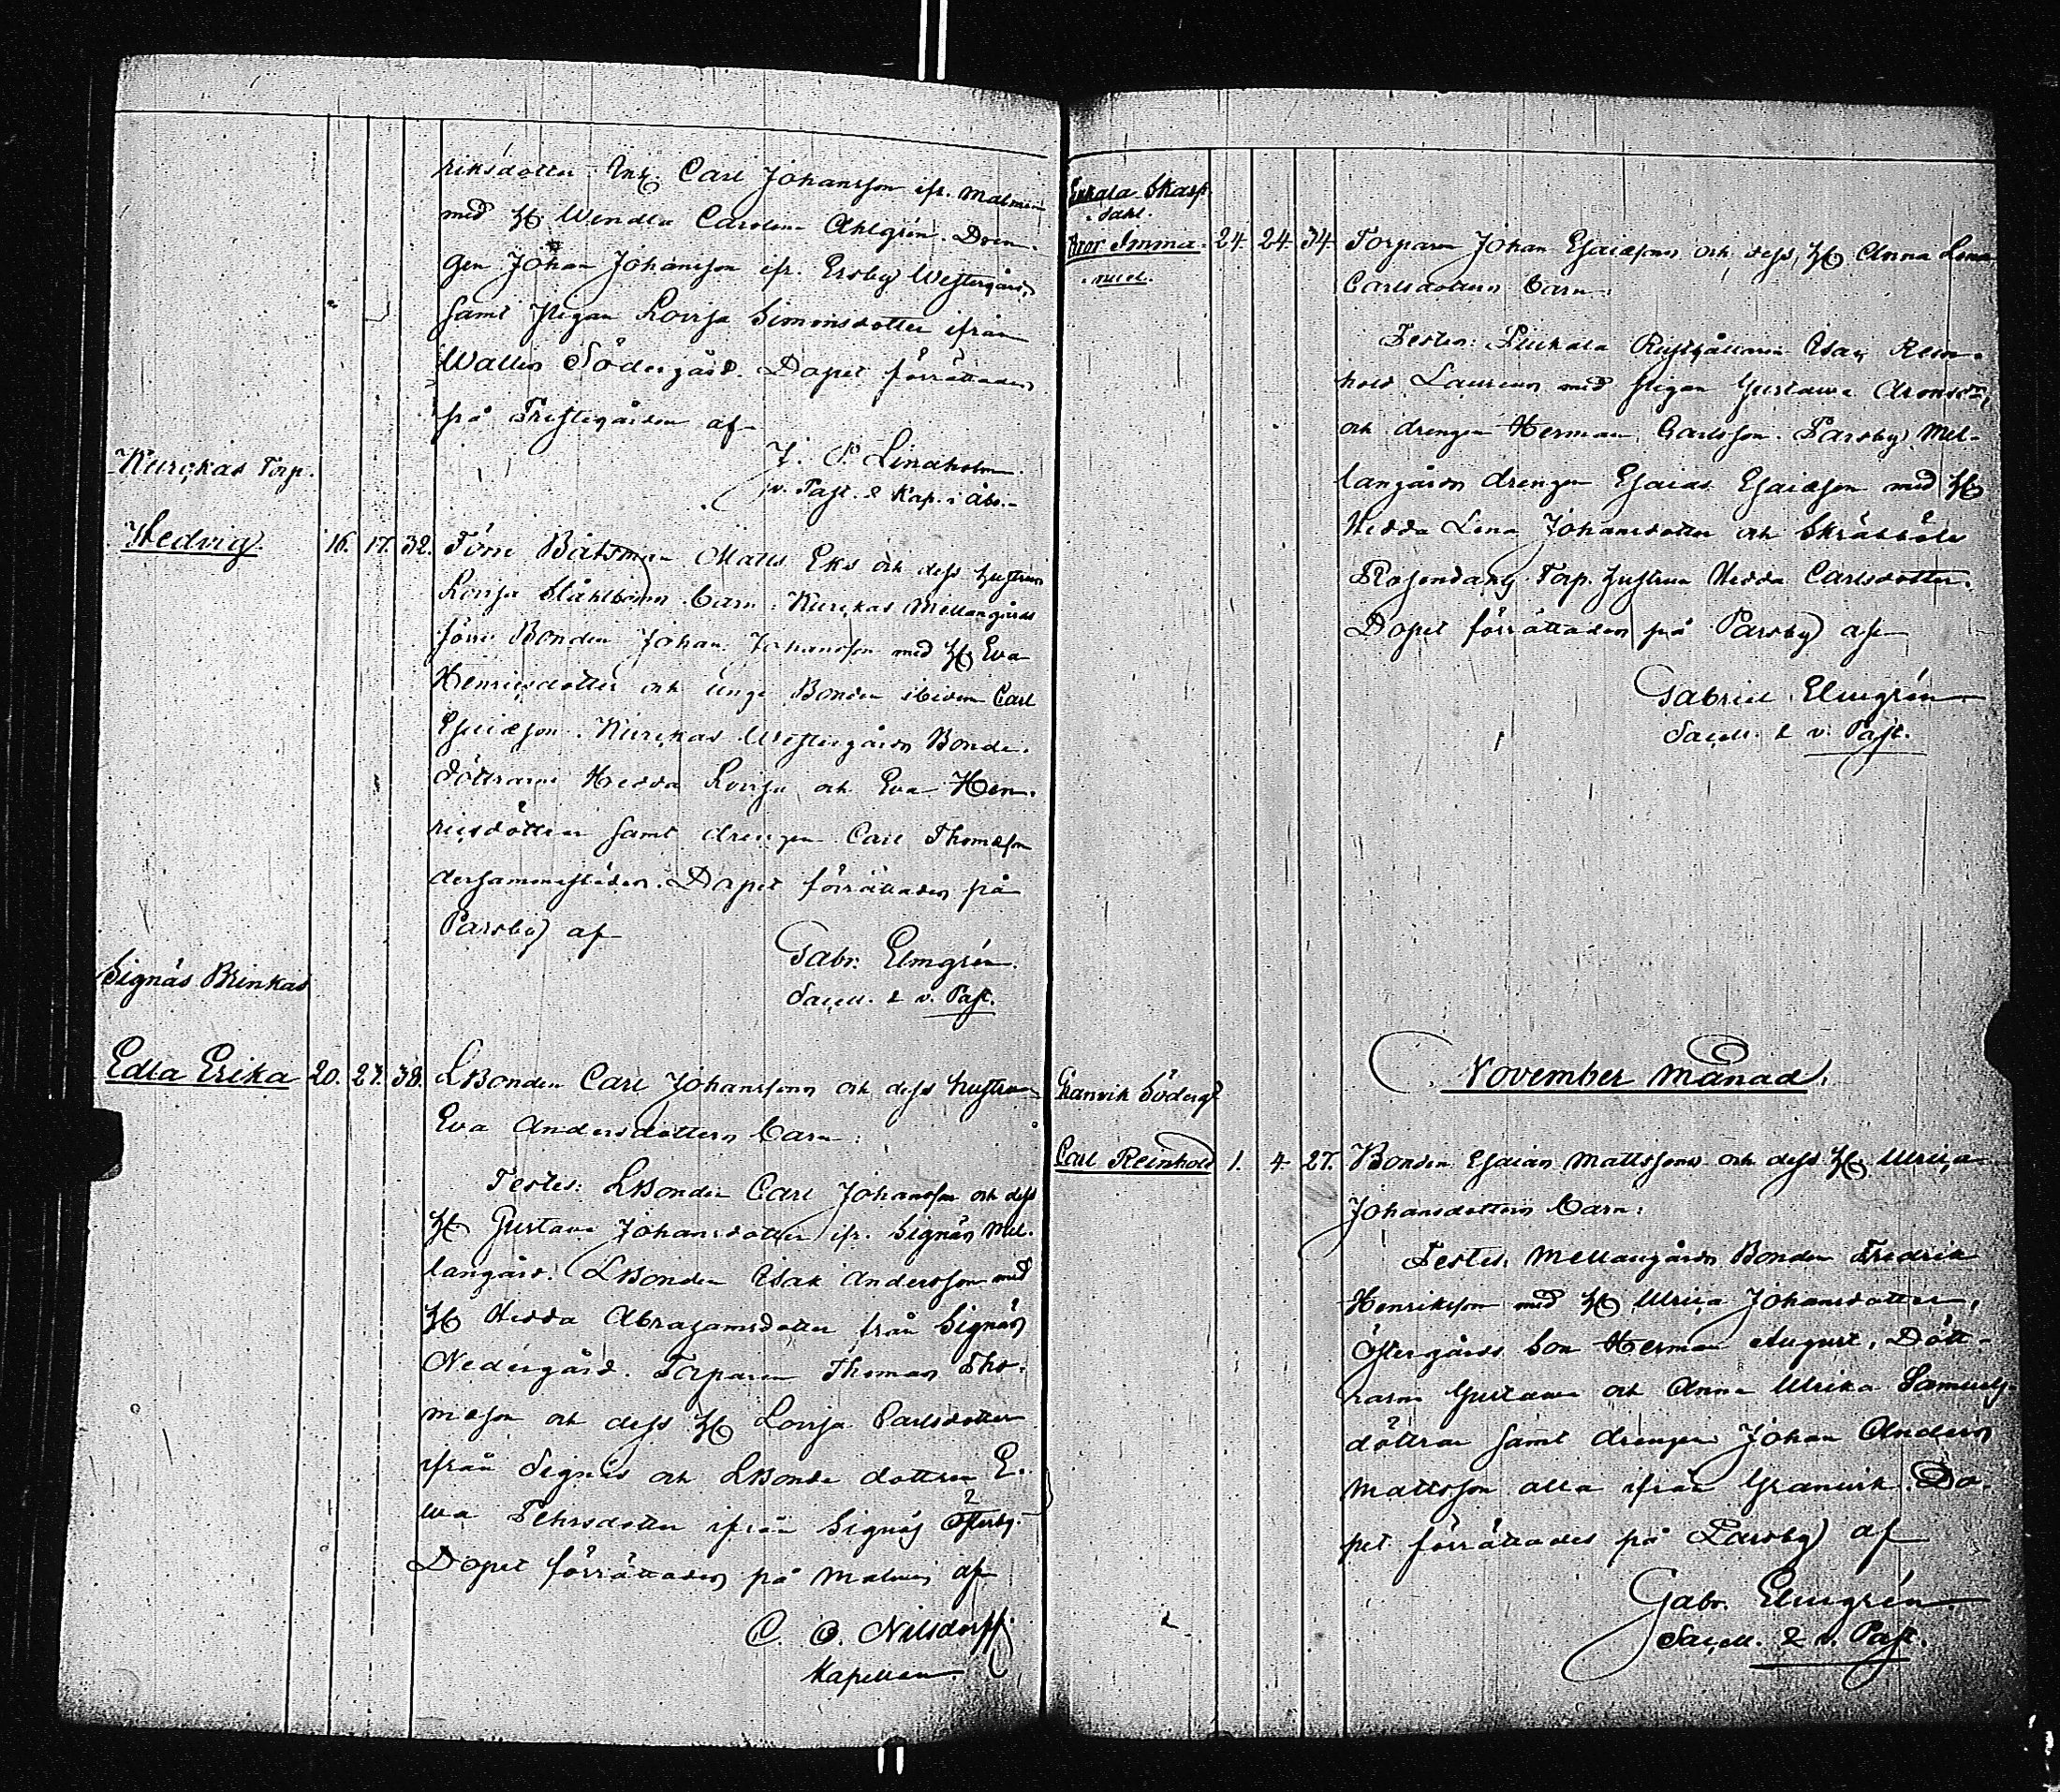 riksdotter. Ink. Carl Johansson ifr. Malmen
med H. Wendla Carolina Ahlgrén. Dren-
gen Johan Johansson ifr. Ersby Westergård,
samt Pigan Lovisa Simonsdotter ifrån
Wallis Södergård. Dopet förrättades
på Prestegården af
J. P. Lindholm
v. Past. & Kap. i Åbo.
Kurckas Torp.
Hedvig. 16. 17. 32. Förre Båtsman Matts Eks och dess hustrus
Lovisa Ståhlboms barn. Kurckas Mellangårds
förre Bonden Johan Johansson med H. Eva
Henricsdotter och unge Bonden ibidem Carl
Esaiæson. Kurckas Westergårds Bonde-
döttrarne Hedda Lovisa och Eva Hen-
ricsdöttrar samt drengen Carl Thomæson
dersammastädes. Dopet förrättades på
Parsby af
Gabr. Elmgrén.
Sacell. & v. Past.
Signäs Brinkas
Edla Erika 20. 27. 38. LBonden Carl Johanssons och dess hustrus
Eva Andersdotters barn:
Testes: LBonden Carl Johansson och dess
H Gustava Johansdotter ifr. Signäs Mel-
langård. LBonden Isak Andersson med
H Hedda Abrahamsdotter från Signäs
Nedergård. Torparen Thomas Tho-
mæson och dess H Lovisa Carlsdotter
ifrån Signäs och LBonde dottren E-
wa Pehrsdotter ifrån Signäs Österg.
Dopet förrättades på Malmen af
C. O. Nilsdorff
Kapellan.
Skarp-
dahl.
Bror Imma-
nuel. 24. 24. 34. Torparen Johan Esaiæsons och dess H Anna Lena
Carlsdotters barn:
Testes: Rusthållaren Isac Rein-
hold Laurens med Pigan Gustawa Aronsdr,
och drengen Herman Carlsson. Parsby Mel-
langårds drengen Esaias Esaiæson med H
Hedda Lena Johansdotter och Skräbböle
Rosendahls Torp. hustrun Hedda Carlsdotter.
Dopet förrättades på Parsby af
Gabriel Elmgrén
Sacell. & v. Past.
November Månad.
Granvik Söderg.
Carl Reinhold 1. 4. 27. Bonden Esaias Mattssons och dess H. Ulrica
Johansdotters barn:
Testes: Mellangårds Bonden Fredrik
Henriksson med H Ulrica Johansdotter,
Östergårds Son Herman August, Dött-
rarne Gustawa och Anna Ulrika Samuels-
döttrar samt drengen Johan Anders
Mattsson alla ifrån Granvik. Do-
pet förrättades på Parsby af
Gabr. Elmgrén
Sacell. & v. Past.